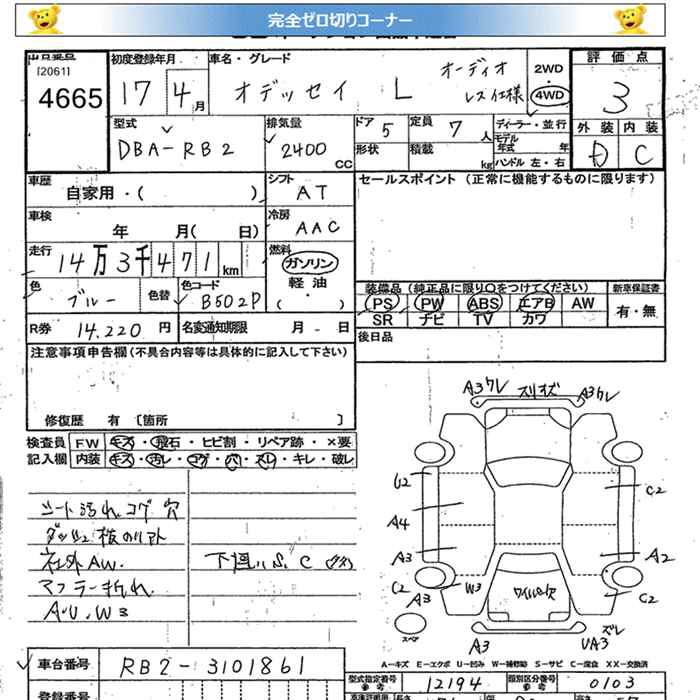 完全ゼロ切りコーナー
出品番号 初度登録年月 車名・グレード 評価点
[2061]
4665
17 4月 オデッセイ L オーディオレス仕様 2WD 4WD 3
型式 排気量 ドア 5 定員 7人 ディーラー・並行 外装 内装
DBA-RB2 2400CC 形状 積載 kg モデル年式 年 ハンドル 左・右 D C
車歴 自家用・( ) シフト AT セールスポイント (正常に機能するものに限ります)
車検 年 月( 日) 冷房 AAC
走行 14万3千471km 燃料 ガソリン 軽油・( )
色 ブルー 色替 色コード B502P
装備品 (純正品に限り○をつけてください) 新車保証書
PS PW ABS エアB AW 有・無
SR ナビ TV カワ
R券 14.220円 名変通知期限 月 日 後日品
注意事項申告欄(不具合内容等は具体的に記入して下さい)
修復歴 有 〔箇所 〕
検査員 FW キズ・飛石・ヒビ割・リペア跡・×要
記入欄 内装 キズ・汚レ・コゲ・穴・スレ・キレ・破レ
シート汚れコゲ穴
社外AW.
マフラー折れ
A・U・W3
A3ワレ スリキズ A3ワレ
U2 C2
A4
A3 A2
C2 A3 W3 C2
スペア
A3 UA3 ズレ
A-キズ E-エクボ U-凹み W-補修跡 S-サビ C-腐食 XX-交換済
車台番号 RB2-3101861
型式指定番号 12194 類別区分番号 0103
登録番号